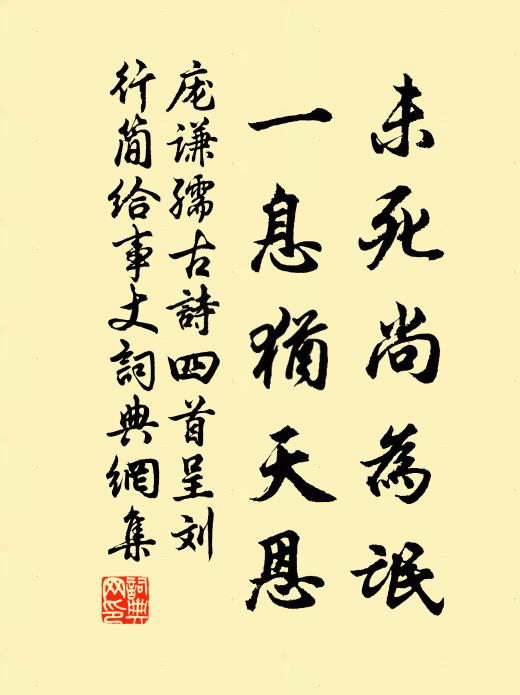 未死尚為氓
一息猶天恩
庞谦孺古詩四首呈刘
行简给事丈詞典網集
詞典网印